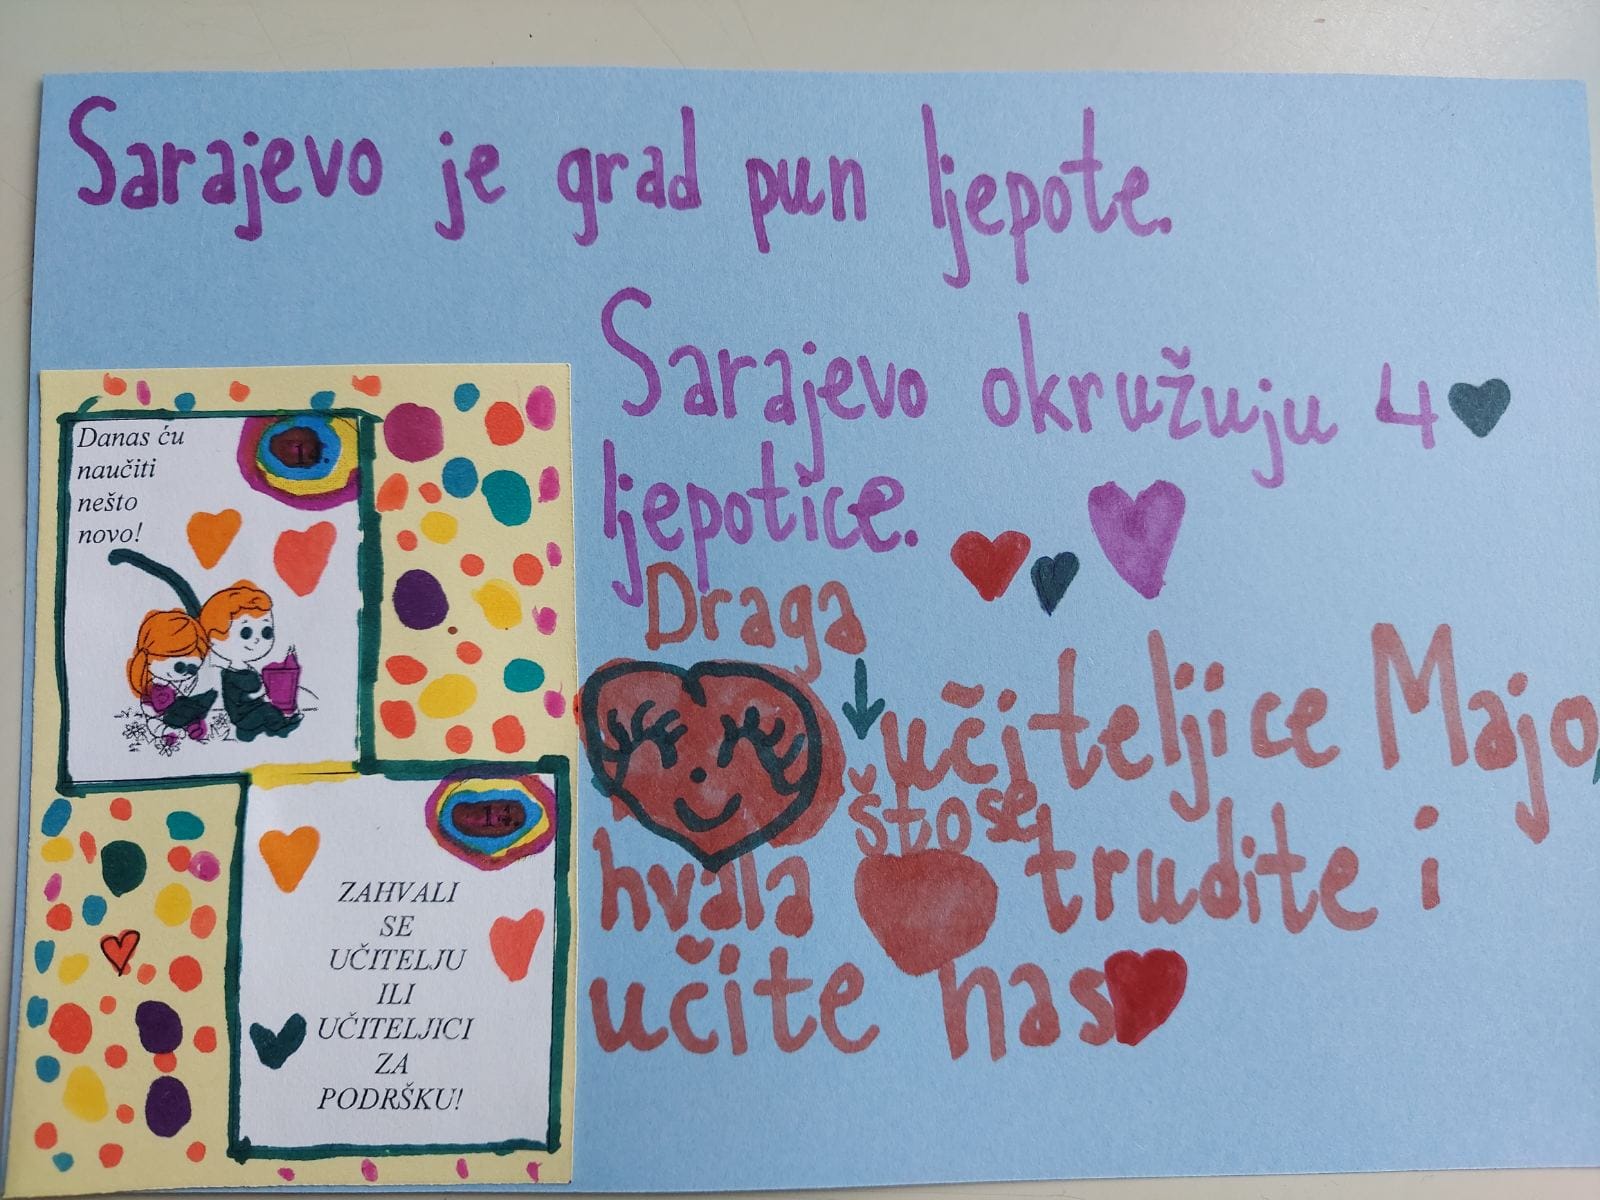 Sarajevo je grad pun ljepote.
Sarajevo okružuju 4
ljepotice.
Draga
učiteljice Majo,
što se
hvala trudite i
učite nas
Danas ću
naučiti
nešto
novo!
14.
ZAHVALI
SE
UČITELJU
ILI
UČITELJICI
ZA
PODRŠKU!